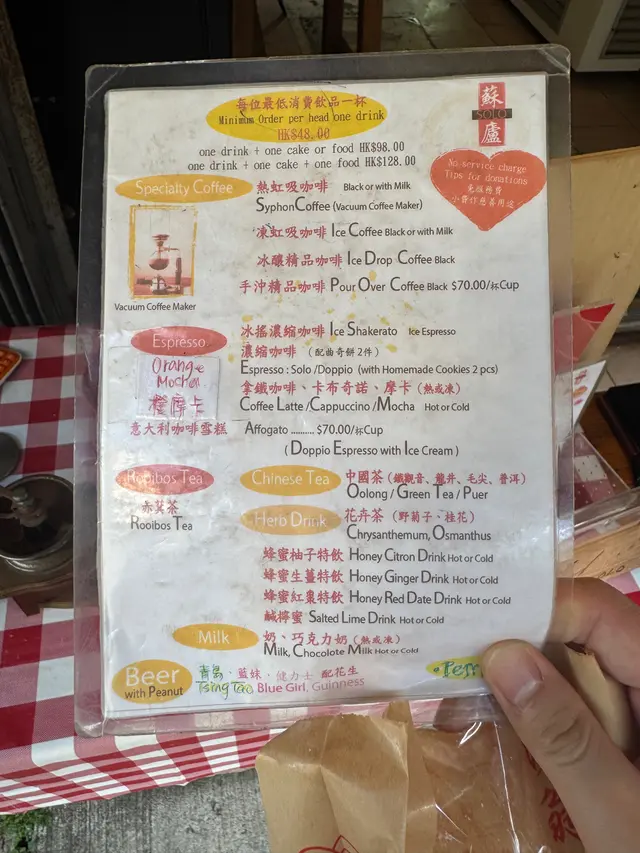 每位最低消費飲品一杯
Minimum Order per head one drink
HK$48.00
one drink + one cake or food HK$98.00
one drink + one cake + one food HK$128.00
蘇
SOLO
廬
No service charge
Tips for donations
免服務費
小費作慈善用途
Specialty Coffee
熱虹吸咖啡 Black or with Milk
Syphon Coffee (Vacuum Coffee Maker)
凍虹吸咖啡 Ice Coffee Black or with Milk
冰釀精品咖啡 Ice Drop Coffee Black
手沖精品咖啡 Pour Over Coffee Black $70.00/杯Cup
Vacuum Coffee Maker
Espresso
冰搖濃縮咖啡 Ice Shakerato Ice Espresso
濃縮咖啡 (配曲奇餅2件)
Espresso : Solo /Doppio (with Homemade Cookies 2 pcs)
Orange Mocha
橙摩卡
拿鐵咖啡、卡布奇諾、摩卡 (熱或凍)
Coffee Latte /Cappuccino /Mocha Hot or Cold
意大利咖啡雪糕 Affogato .......... $70.00/杯Cup
( Doppio Espresso with Ice Cream )
Rooibos Tea
赤萁茶
Rooibos Tea
Chinese Tea
中國茶 (鐵觀音、龍井、毛尖、普洱)
Oolong / Green Tea / Puer
Herb Drink
花卉茶 (野菊子、桂花)
Chrysanthemum, Osmanthus
蜂蜜柚子特飲 Honey Citron Drink Hot or Cold
蜂蜜生薑特飲 Honey Ginger Drink Hot or Cold
蜂蜜紅棗特飲 Honey Red Date Drink Hot or Cold
鹹檸蜜 Salted Lime Drink Hot or Cold
Milk
奶、巧克力奶 (熱或凍)
Milk, Chocolate Milk Hot or Cold
Beer
with Peanut
青島、藍妹、健力士 配花生
Tsing Tao Blue Girl, Guinness